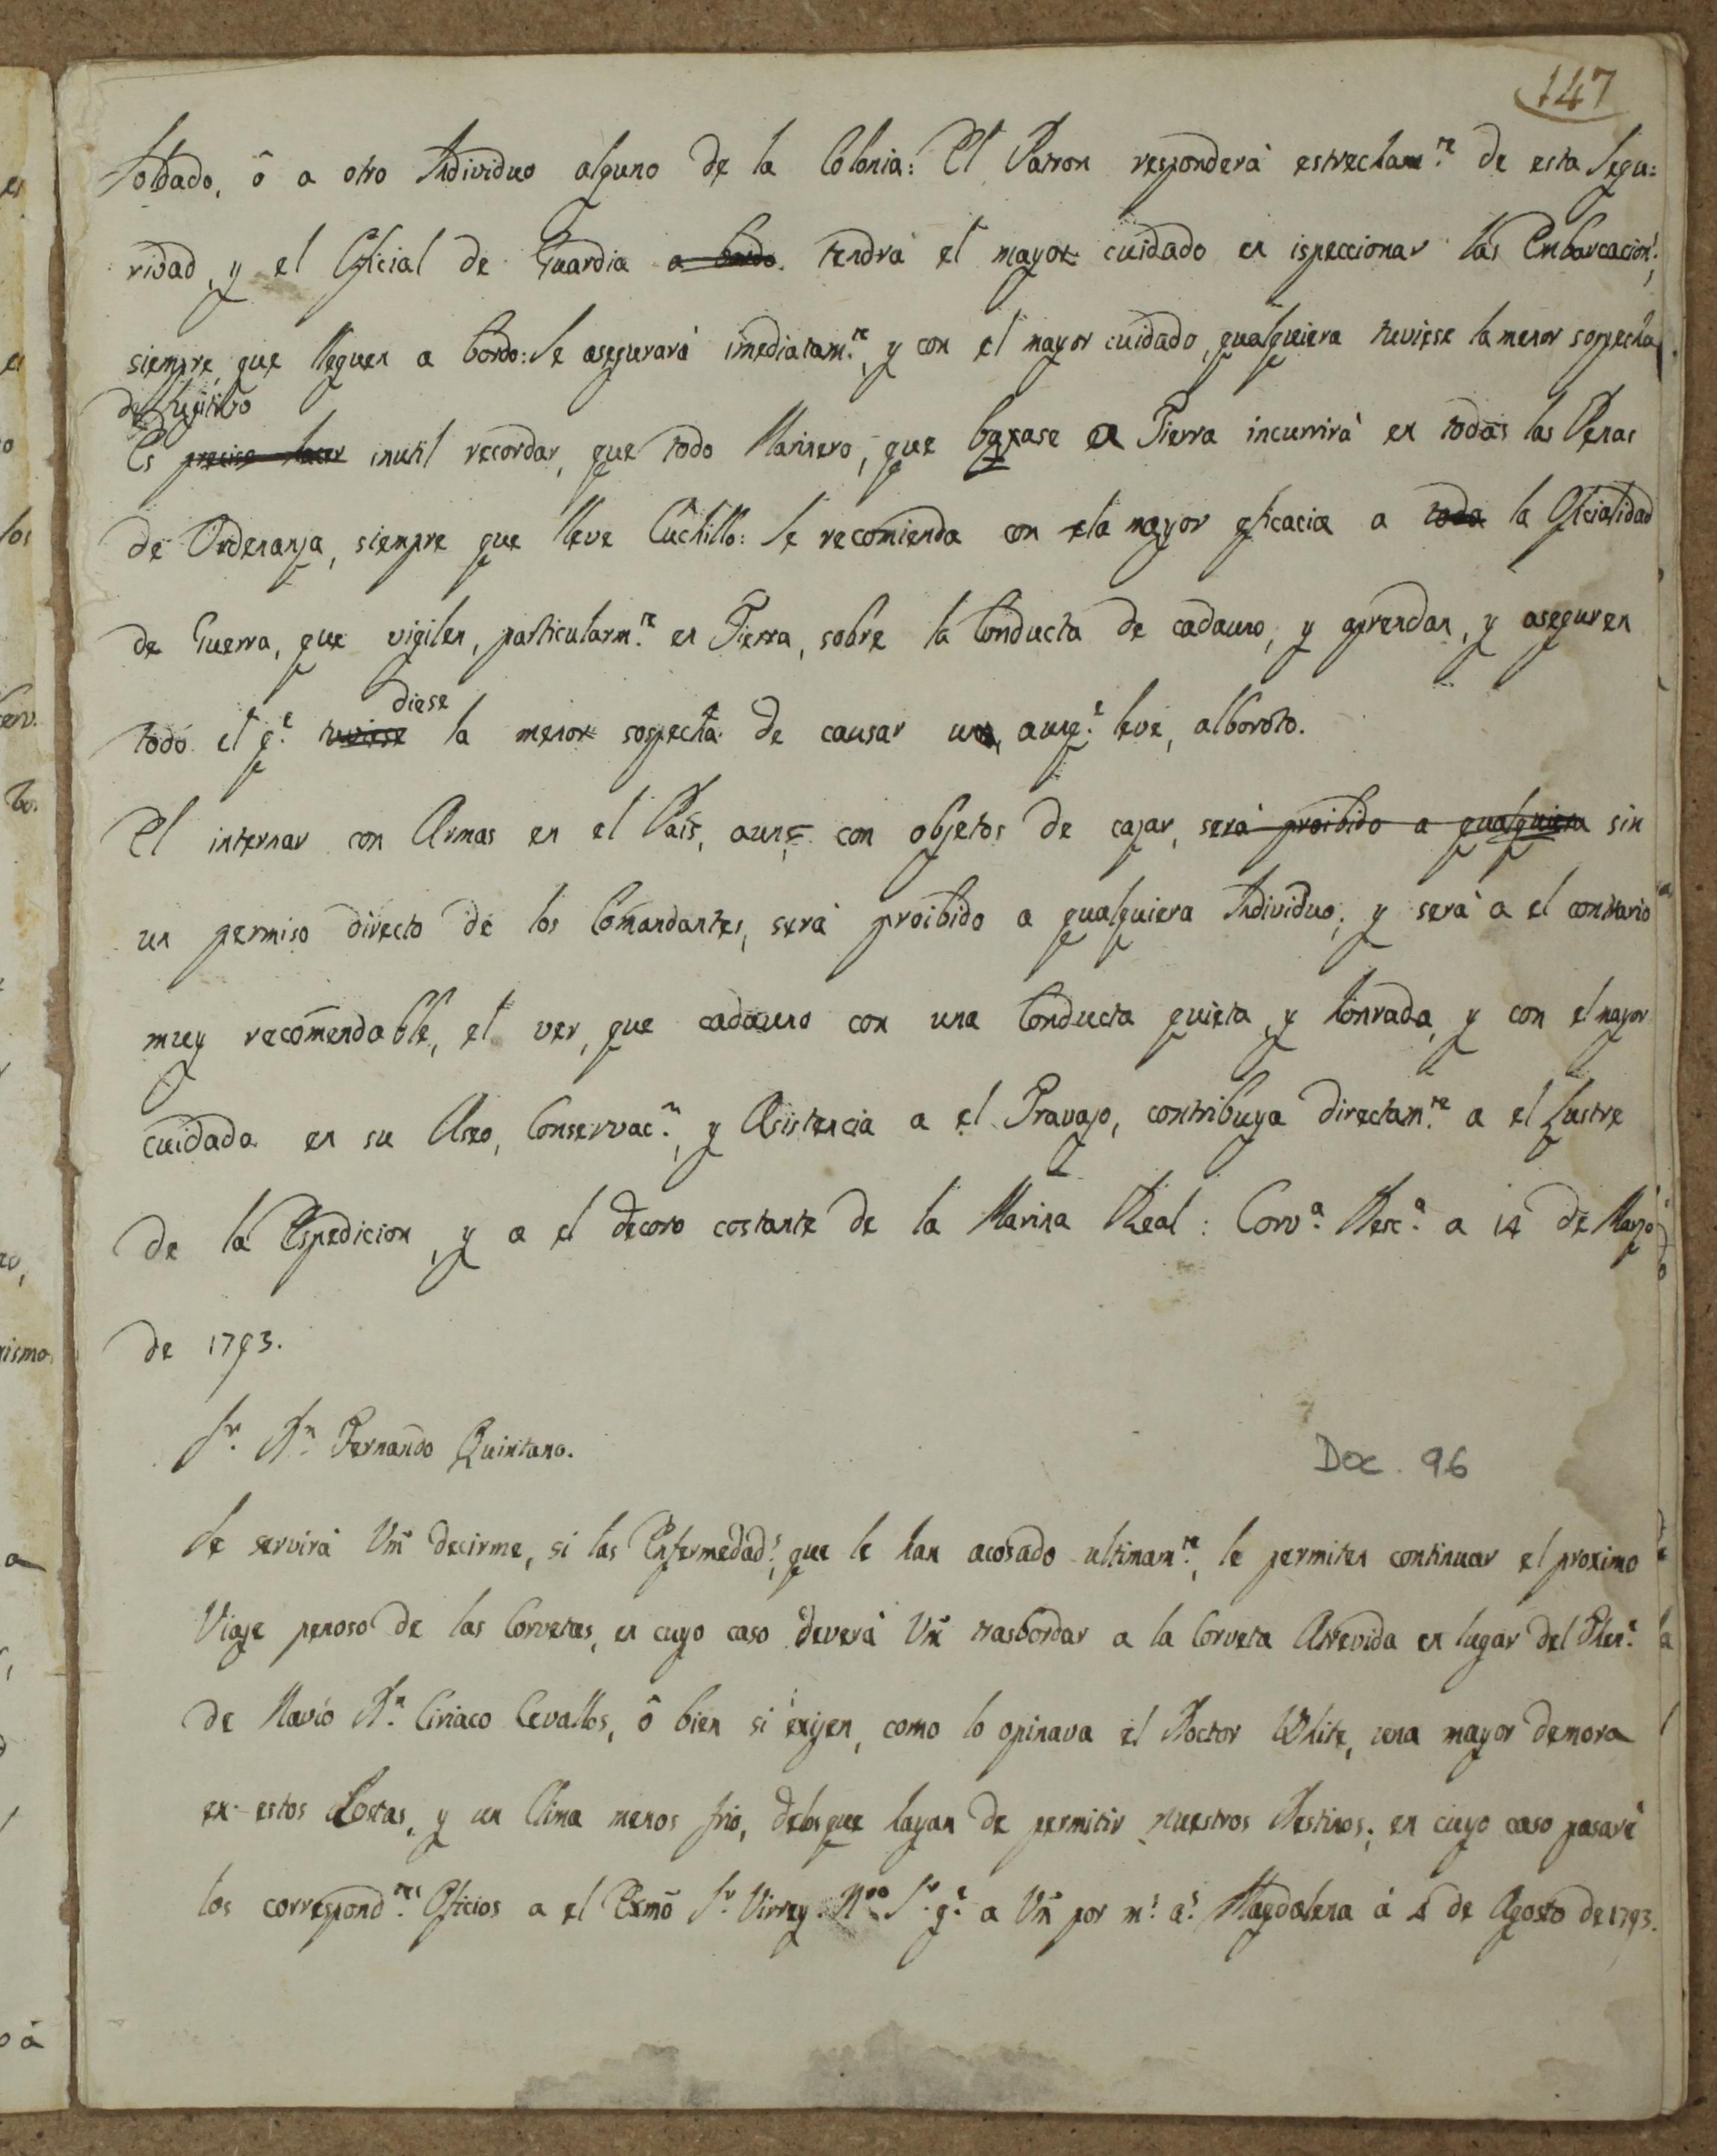 147
Soldado, ô a otro Individuo alguno de la Colonia: El Patron responderà estrecham.te de esta Segu:
ridad, y el Oficial de Guardia a bordo tendrà el mayor cuidado en ispeccionar las Embarcacion.s,
siempre, que lleguen a bordo: Se asegurarà imediatam.te, y con el mayor cuidado, qualquiera tuviese la menor sospecha
de
Es preciso hacer inutil recordar, que todo Marinero, que baxase en Tierra incurrirà en todas las Penas
de Ordenanza, siempre que lleve Cuchillo: Se recomienda con la mayor eficacia a toda la Oficialidad
de Guerra, que vigilen, particularm.te en Tierra, sobre la Conducta de cadauno, y aprendan, y aseguren
diese
todo el q.e tuviese la menor sospecha de causar un, aunq.e leve, alboroto.
El internar con Armas en el Pais, aunq.e con objetos de cazar, serà proibido a qualquiera sin
un permiso directo de los Comandantes, serà proibido a qualquiera Individuo; y serà a el contrario
muy recomendable, el ver, que cadauno con una Conducta quieta, y honrada, y con el mayor
cuidado en su Aseo, Conservac.n, y Asistencia a el Travajo, contribuya directam.te a el Lustre
de la Espedicion, y a el decoro costante de la Marina Real: Corv.a Desc.a a 14 de Marzo
de 1793.
S.r D.n Fernando Quintano.
Doc. 96
Se servirà Vm̃ decirme, si las Enfermedad.s, que le han acosado ultimam.te, le permiten continuar el proximo
Viaje penoso de las Corvetas, en cuyo caso deverà Vm̃ trasbordar a la Corveta Atrevida en lugar del Then.e
de Navio D.n Ciriaco Cevallos, ô bien si exijen, como lo opinava el Doctor White, una mayor demora
en estos Costas, y un Clima menos frio, delosque hayan de permitir nuestros Destinos; en cuyo caso pasarè
los correspond.tes Oficios a el Exmõ S.r Virrey. N.ro S.r g.e a Vm̃ por m.s a.s Magdalena à 4 de Agosto de 1793.